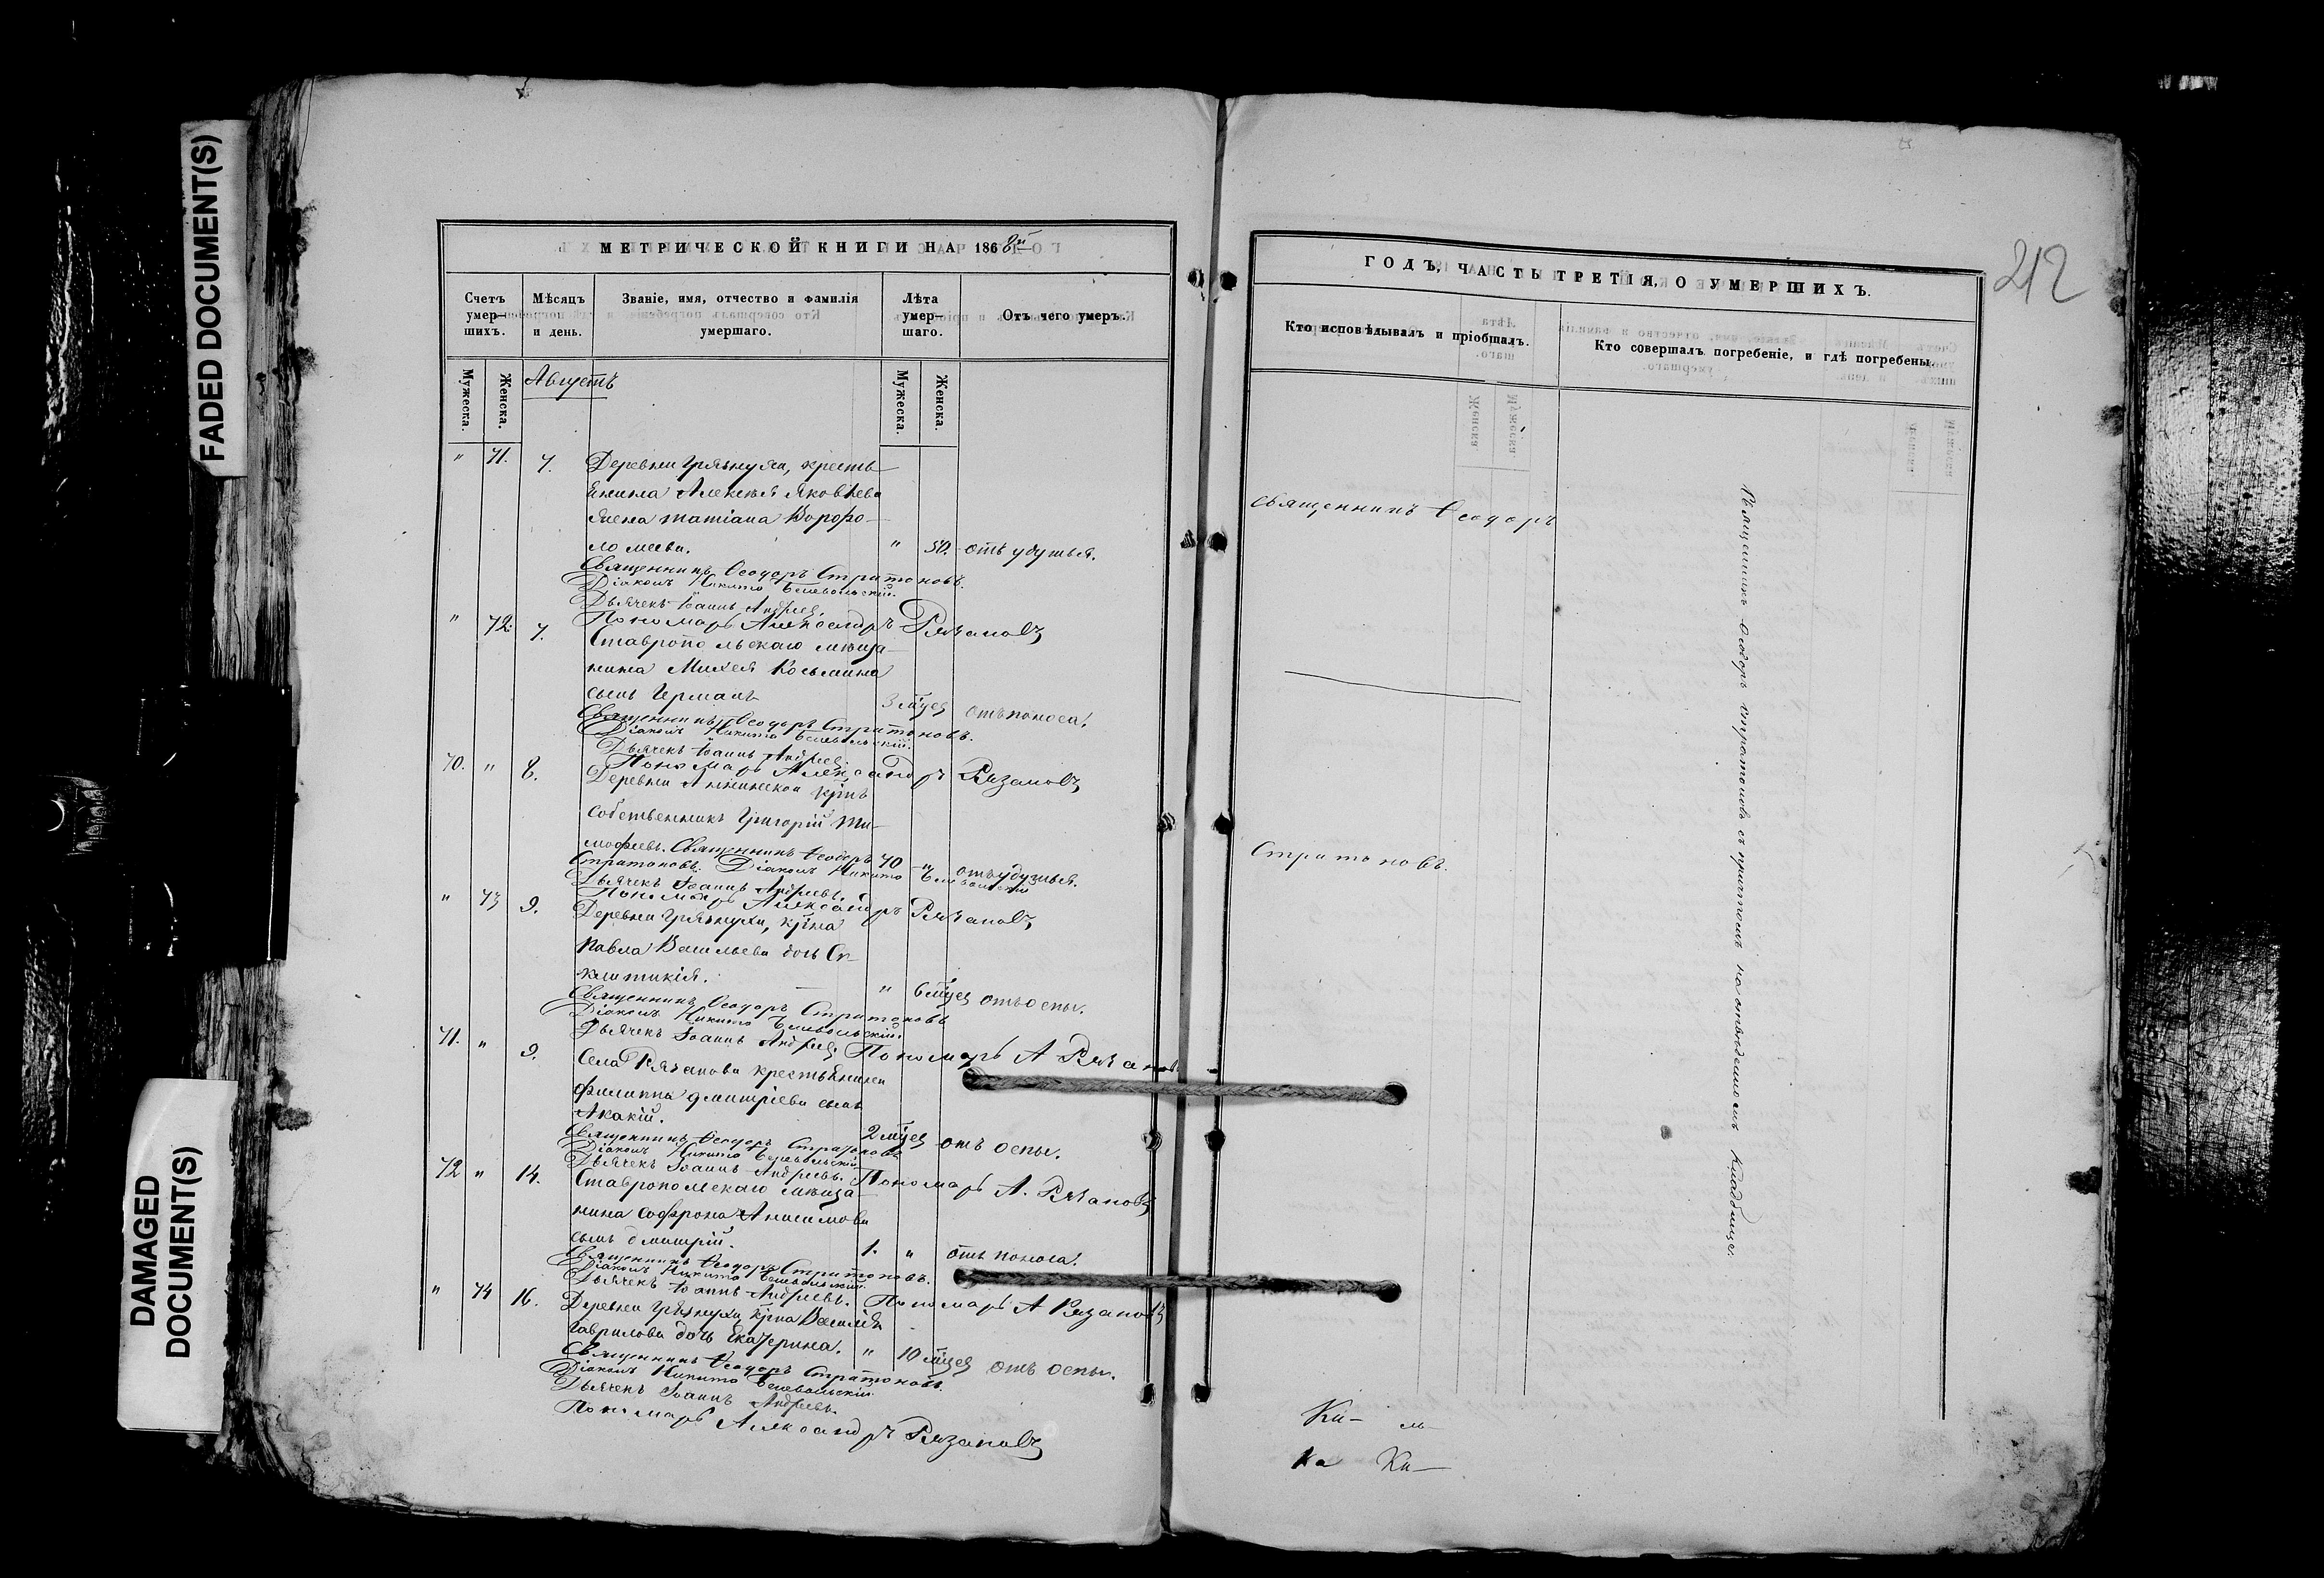 FADED DOCUMENT(S)
DAMAGED
DOCUMENT(S)
МЕТРИЧЕСКОЙ КНИГИ НА 1868й
Счетъ умер-шихъ.
Мѣсяцъ и день.
Званіе, имя, отчество и фамилія умершаго.
Лѣта умер-шаго.
Отъ чего умеръ.
Мужеска.
Женска.
Августъ
Мужеска.
Женска.
" 71. 7. Деревни Грязнухи, кресть-
янина Алексѣя Яковлева
жена Татіана Ворфо-
ломеева. " 50. отъ удушья.
Священникъ Ѳеодоръ Стратоновъ.
Діаконъ Никита
Дьячекъ Іоаннъ Андреев.
Пономарь Александръ Рязановъ
" 72. 7.
Ставропольскаго мѣща-
нина Михея Косьмина
сынъ Германъ 3 мцев отъ поноса.
Священникъ Ѳеодоръ Стратоновъ.
Діаконъ Никита
Дьячекъ Іоаннъ Андреев.
Пономарь Александръ Рязановъ
70. " 8. Деревни крнъ
собственникъ Григорій Ти-
мофеевъ. Священникъ Ѳеодоръ 70 " отъ удушья.
Стратоновъ. Діаконъ Никита
Дьячекъ Іоаннъ Андреевъ.
Пономарь Александръ Рязановъ
" 73 9. Деревни Грязнухи, крна
Павла Васильева дочь Си-
клитикія. " 6 мцев отъ оспы.
Священникъ Ѳеодоръ Стратоновъ
Діаконъ Никита
Дьячекъ Іоаннъ Андреев Пономарь А Рязановъ
71. " 9. Села Рязанова крестьянина
Филиппа Дмитріева сынъ
Акакій. 2 мцев отъ оспы.
Священникъ Ѳеодоръ Стратоновъ
Діаконъ Никита
Дьячекъ Іоаннъ Андреевъ. Пономарь А. Рязановъ
72 " 14. Ставропольскаго мѣща-
нина Софрона Анисимова
сынъ Дмитрій. 1. " отъ поноса.
Священникъ Ѳеодоръ Стратоновъ.
Діаконъ Никита
Дьячекъ Іоаннъ Андреевъ. Пономарь А Рязановъ
" 74 16. Деревни Грязнухи крна Василія
Гаврилова дочь Екатерина. " 10 мцев отъ оспы.
Священникъ Ѳеодоръ Стратоновъ.
Діаконъ Никита
Дьячекъ Іоаннъ Андреевъ.
Пономарь Александръ Рязановъ
ГОДЪ, ЧАСТЬ ТРЕТІЯ, О УМЕРШИХЪ.
212
Кто исповѣдывалъ и пріобщалъ.
Кто совершалъ погребеніе, и гдѣ погребены.
Священникъ Ѳеодоръ
Стратоновъ.
Священникъ Ѳеодоръ Стратоновъ съ причтомъ на отведенномъ кладбище.
Ки- м-
Ка Ки-